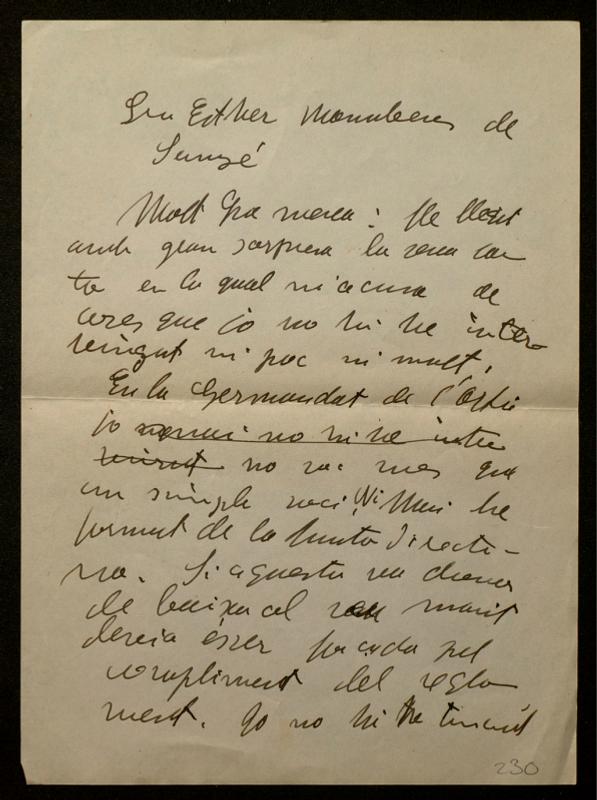 Sra Esther Monuberes de
Sunyé
Molt Sra meva: He llegit
amb gran sorpresa la seva car
ta en la qual m'acusa de
coses que jo no hi he inter
vingut ni poc ni molt.
En la Germandat de l'Asil
jo no hi he inter
vingut no soc mes que
un simple soci, Ni Mai he
format de la Junta Directi-
va. Si aquesta va donar
de baixa al seu marit
devia ésser forçada pel
compliment del regla
ment. Jo no hi he tingut
230